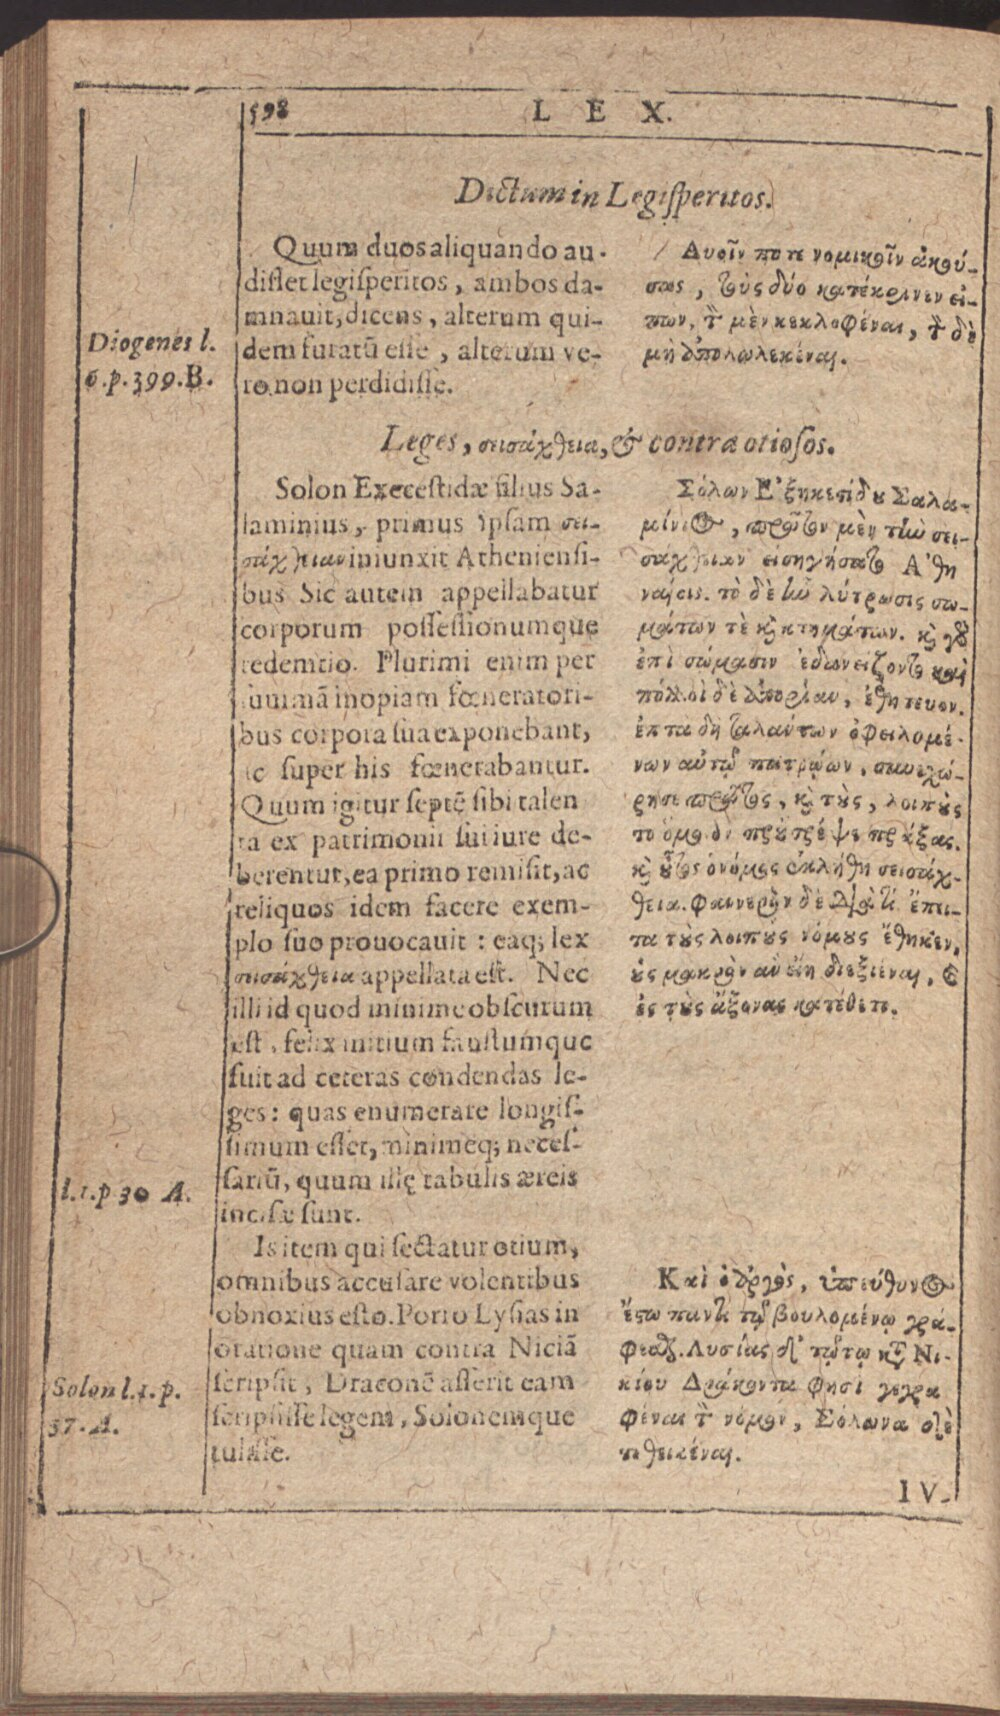 598
L E X.
Dictum in Legisperitos.
Quum duos aliquando au-
disset legisperitos, ambos da-
mnauit, dicens, alterum qui-
dem furatũ esse, alterum ve-
ro non perdidisse.
Diogenes l.
6.p.399.B.
Δυοῖν ποτε νομικοῖν ἀκού-
σας, τοὺς δύο κατέκρινεν εἰ-
πων, τ̀ μὲν κεκλοφέναι, τ̀ δὲ
μὴ ἀπολωλεκέναι.
Leges, σεισάχθεια, & contra otiosos.
Solon Execestidæ filius Sa-
laminius, primus ipsam σει-
σάχθειαν iniunxit Atheniensi-
bus Sic autem appellabatur
corporum possessionumque
redemtio. Plurimi enim per
summã inopiam fœneratori-
bus corpora sua exponebant,
ac super his fœnerabantur.
Quum igitur septẽ sibi talen
ta ex patrimonii sui iure de-
berentur, ea primo remisit, ac
reliquos idem facere exem-
plo suo prouocauit: eaq; lex
σεισάχθεια appellata est. Nec
illi id quod minime obscurum
est, felix initium faustumque
fuit ad ceteras condendas le-
ges: quas enumerare longis-
simum esset, minimeq; neces-
sariũ, quum illę tabulis æreis
incisæ sunt.
l.1.p 30 A.
Σόλων Ἐξηκεστίδου Σαλα-
μίνιος, πρῶτον μὲν τὴν σει-
σάχθειαν εἰσηγήσατο Ἀθη
ναίοις. τὸ δὲ ἦν λύτρωσις σω-
μάτων τὲ καὶ κτημάτων. καὶ γὸ
ἐπὶ σώμασιν ἐδανείζοντο καὶ
πολλοὶ δὲ ἀπορίαν, ἐθήτευον.
ἑπτὰ δὴ ταλάντων ὀφειλομέ-
νων αὐτῷ πατρῴων, συνεχώ-
ρησε πρῶτος, καὶ τοὺς, λοιποὺς
το ὅμοιον προὔτρεψε πράξας.
καὶ οὗτος ὁ νόμος ἐκλήθη σεισάχ-
θεια. φανερὸν δὲ διὰ τί ἔπει-
τα τοὺς λοιποὺς νόμους ἔθηκεν,
οὓς μακρὸν ἂν εἴη διεξιέναι, καὶ
ἐς τοὺς ἄξονας κατέθετο.
Is item qui sectatur otium,
omnibus accusare volentibus
obnoxius esto. Porro Lysias in
oratione quam contra Niciã
scripsit, Draconẽ asserit eam
scripsisse legem, Solonemque
tulisse.
Solon l.1.p.
37.A.
Καὶ ὁ ἀργὸς, ὑπεύθυνος
ἔστω παντὶ τῷ βουλομένῳ γρά-
φεσθαι. Λυσίας δ' ἐν τῷ κατὰ Νι-
κίου Δράκοντα φησὶ γεγρα
φέναι τ̀ νόμον, Σόλωνα δὲ
τεθεικέναι.
IV-